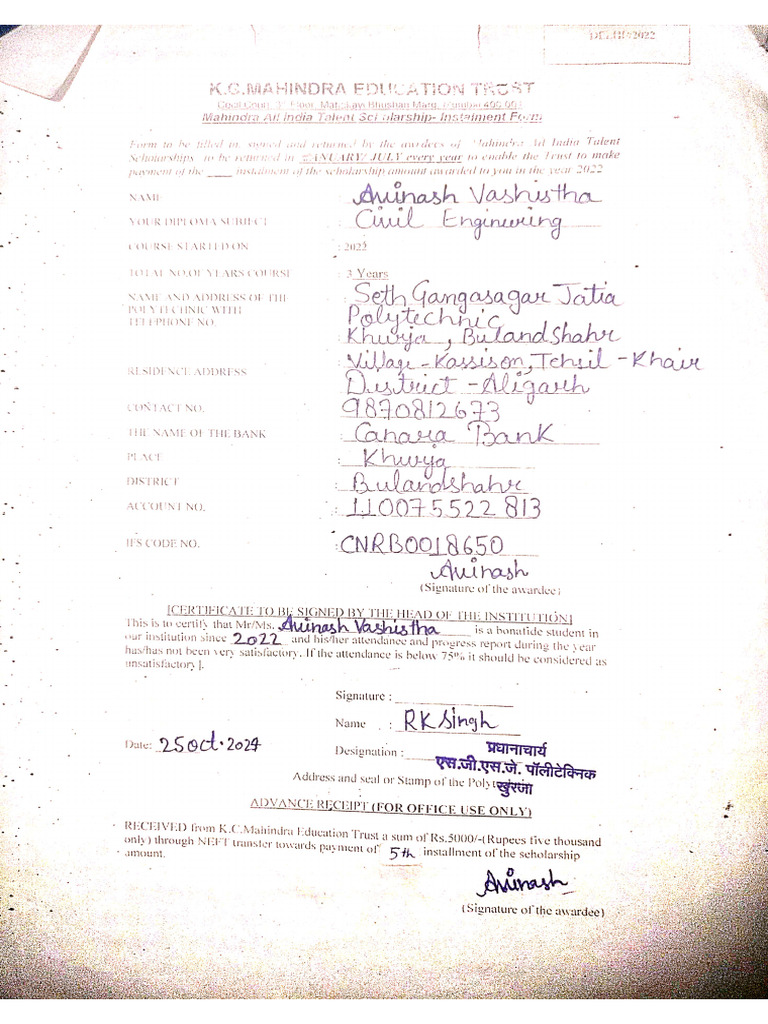 DELHI/2022
K.C.MAHINDRA EDUCATION TRUST
Cecil Court, 3rd Floor, Mahakavi Bhushan Marg, Mumbai 400 001
Mahindra All India Talent Scholarship- Instalment Form
Form to be filled in, signed and returned by the awrdees of Mahindra All India Talent
Scholarships to be returned in JANUARY/ JULY every year to enable the Trust to make
payment of the ____ instalment of the scholarship amount awarded to you in the year 2022
NAME Avinash Vashistha
YOUR DIPLOMA SUBJECT : Civil Engineering
COURSE STARTED ON : 2022
TOTAL NO.OF YEARS COURSE : 3 Years
NAME AND ADDRESS OF THE : Seth Gangasagar Jatia
POLYTECHNIC WITH Polytechnic
TELEPHONE NO. : Khurja, Bulandshahr
RESIDENCE ADDRESS : Village-Kassison, Tehsil-Khair
District-Aligarh
CONTACT NO. : 9870812673
THE NAME OF THE BANK : Canara Bank
PLACE : Khurja
DISTRICT : Bulandshahr
ACCOUNT NO. : 110075522813
IFS CODE NO. : CNRB0018650
Avinash
(Signature of the awardee)
[CERTIFICATE TO BE SIGNED BY THE HEAD OF THE INSTITUTION]
This is to certify that Mr/Ms. Avinash Vashistha is a bonafide student in
our institution since 2022 and his/her attendance and progress report during the year
has/has not been very satisfactory. If the attendance is below 75% it should be considered as
unsatisfactory ].
Signature :
Name : RK Singh
Date: 25 oct. 2024
Designation : प्रधानाचार्य
एस.जी.एस.जे. पॉलीटेक्निक
Address and seal or Stamp of the Polyt खुरजा
ADVANCE RECEIPT (FOR OFFICE USE ONLY)
RECEIVED from K.C.Mahindra Education Trust a sum of Rs.5000/-(Rupees five thousand
only) through NEFT transfer towards payment of 5th installment of the scholarship
amount.
Avinash
(Signature of the awardee)